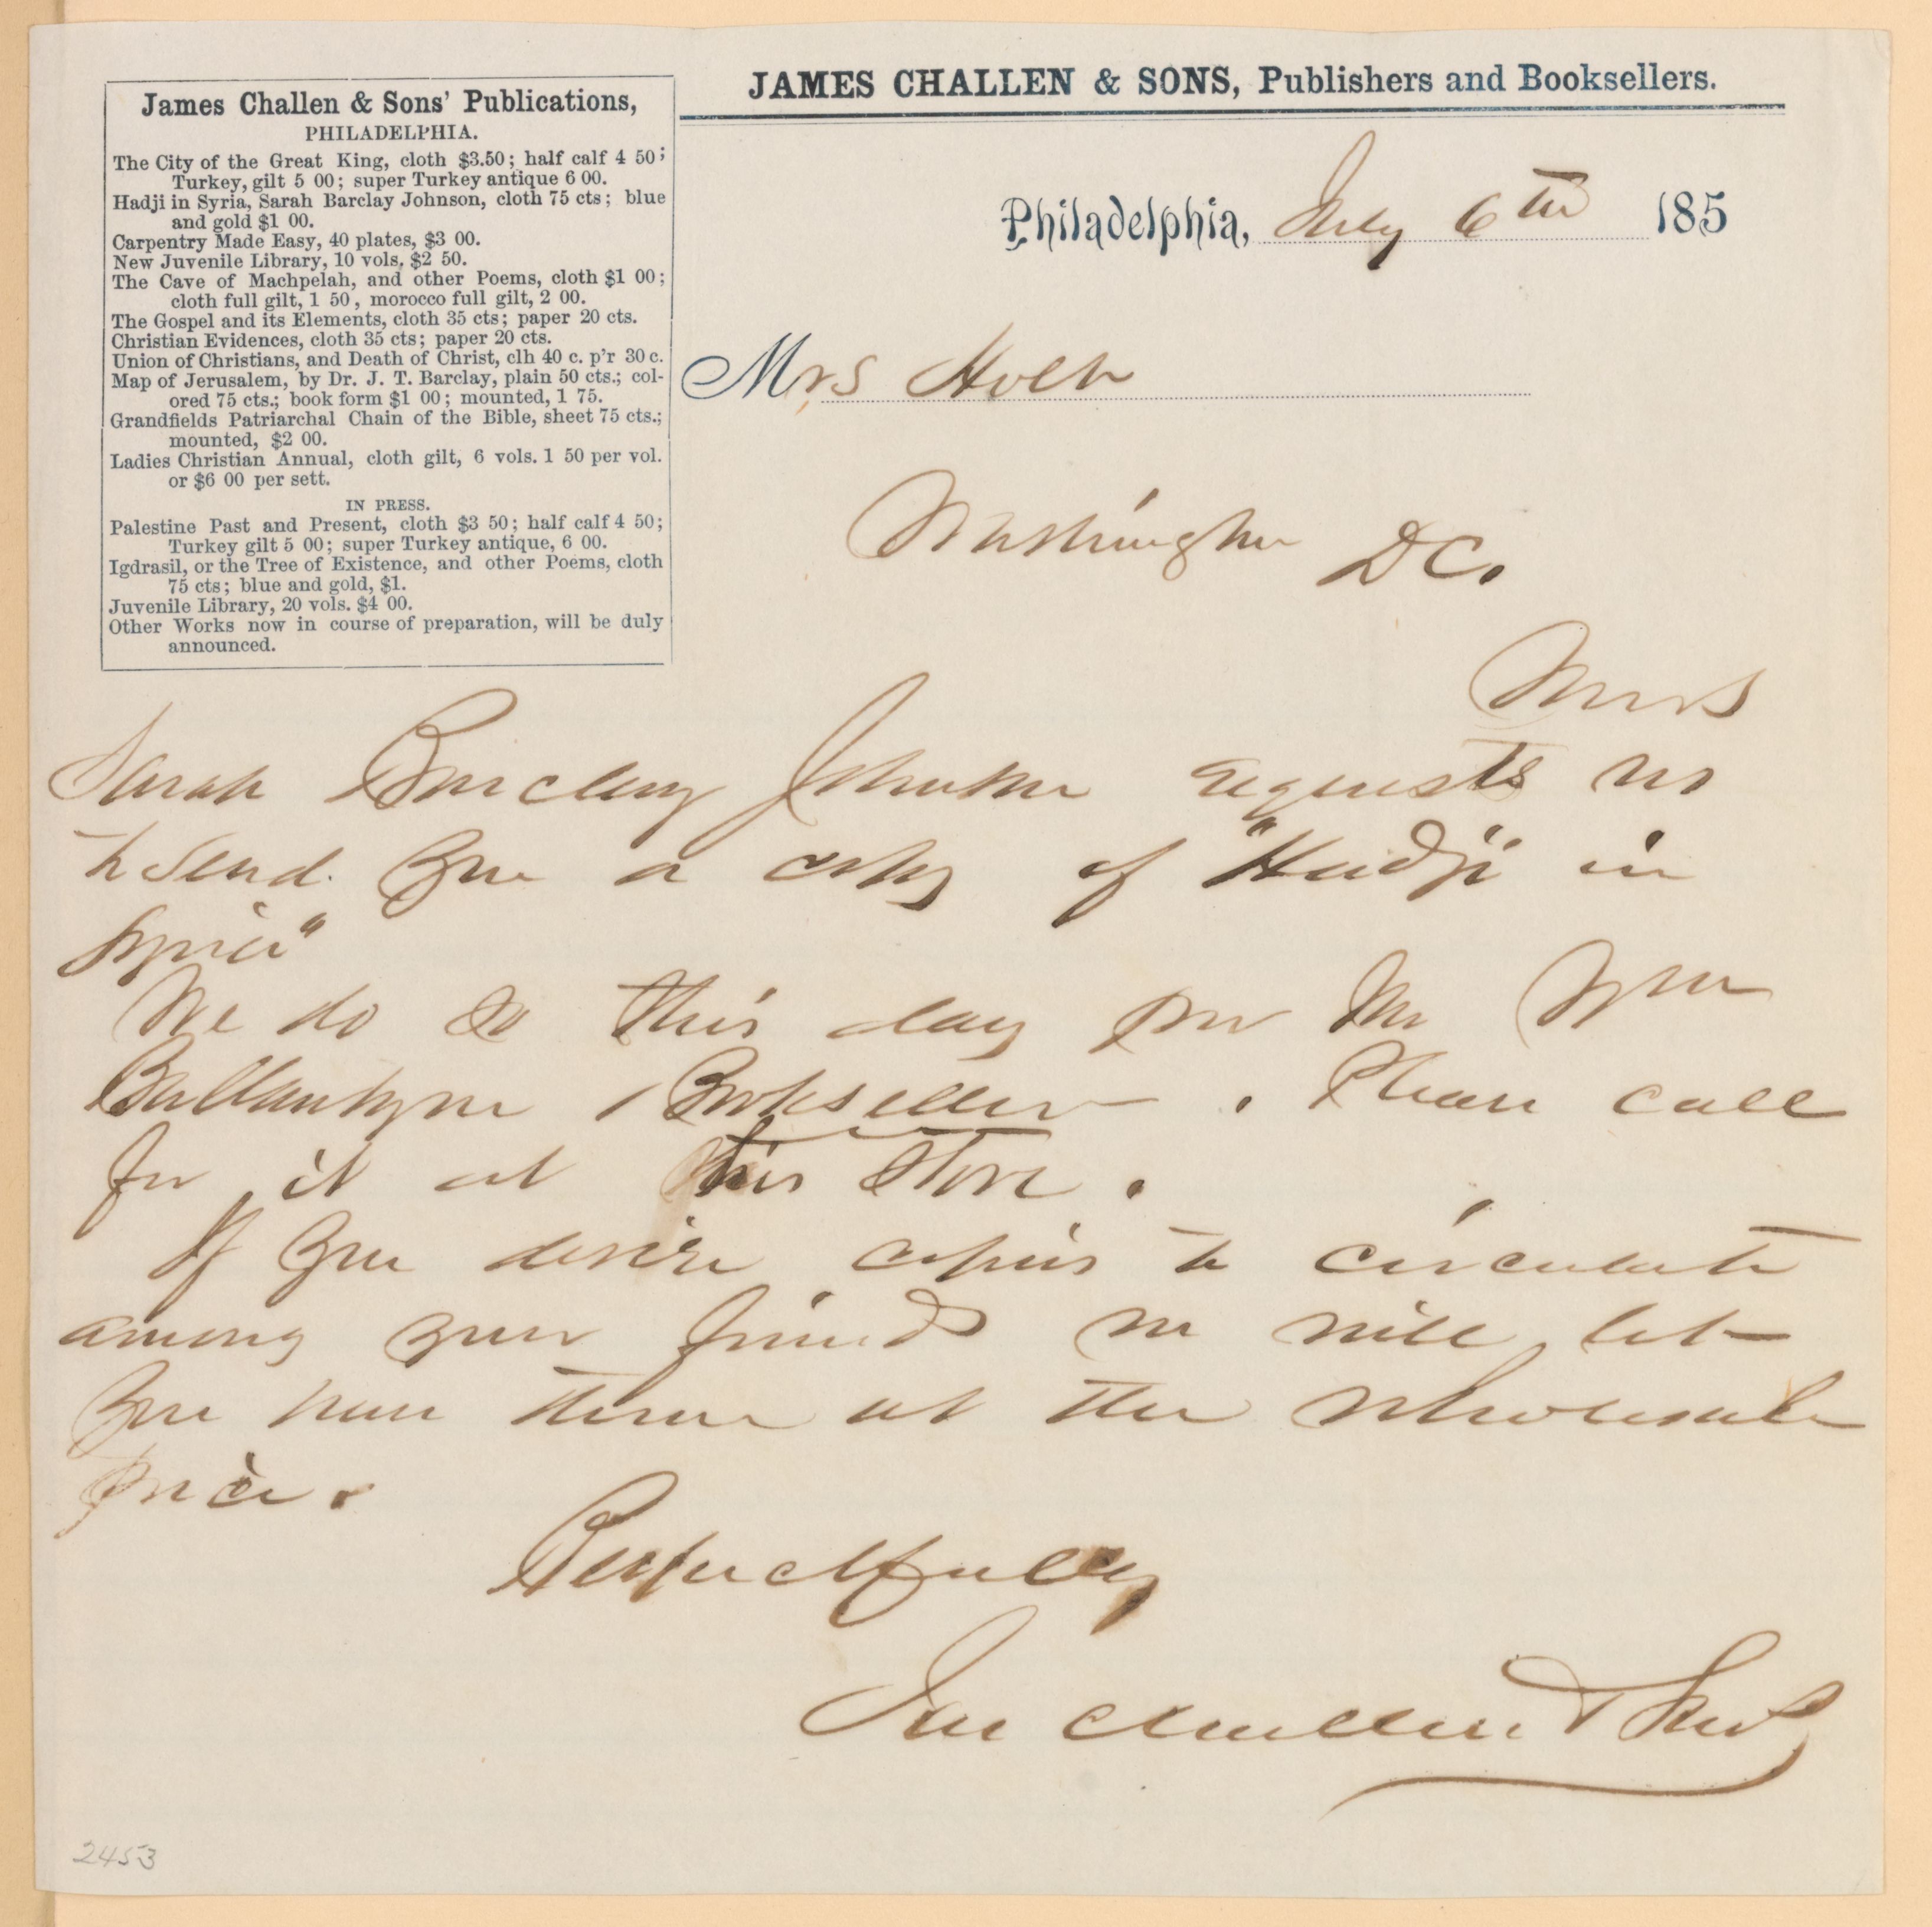 James Challen & Sons' Publications,
PHILADELPHIA.
The City of the Great King, cloth $3.50; half calf 4 50;
Turkey, gilt 5 00; super Turkey antique 6 00.
Hadji in Syria, Sarah Barclay Johnson, cloth 75 cts; blue
and gold $1 00.
Carpentry Made Easy, 40 plates, $3 00.
New Juvenile Library, 10 vols. $2 50.
The Cave of Machpelah, and other Poems, cloth $1 00;
cloth full gilt, 1 50, morocco full gilt, 2 00.
The Gospel and its Elements, cloth 35 cts; paper 20 cts.
Christian Evidences, cloth 35 cts; paper 20 cts.
Union of Christians, and Death of Christ, clh 40 c. p'r 30 c.
Map of Jerusalem, by Dr. J. T. Barclay, plain 50 cts.; col-
ored 75 cts.; book form $1 00; mounted, 1 75.
Grandfields Patriarchal Chain of the Bible, sheet 75 cts.;
mounted, $2 00.
Ladies Christian Annual, cloth gilt, 6 vols. 1 50 per vol.
or $6 00 per sett.
IN PRESS.
Palestine Past and Present, cloth $3 50; half calf 4 50;
Turkey gilt 5 00; super Turkey antique, 6 00.
Igdrasil, or the Tree of Existence, and other Poems, cloth
75 cts; blue and gold, $1.
Juvenile Library, 20 vols. $4 00.
Other Works now in course of preparation, will be duly
announced.
JAMES CHALLEN & SONS, Publishers and Booksellers.
Philadelphia, July 6th 185
Mrs Holt
Washington DC.
Mrs
Sarah Barclay Johnson requests us
to send you a copy of "Hadji" in
Syria"
We do so this day per Mr Wm
Ballantyne, Bookseller. Please call
for it at his store.
If you desire copies to circulate
among your friends we will let
you have them at the wholesale
price.
Respectfully
Jas Challen & Sons
2453